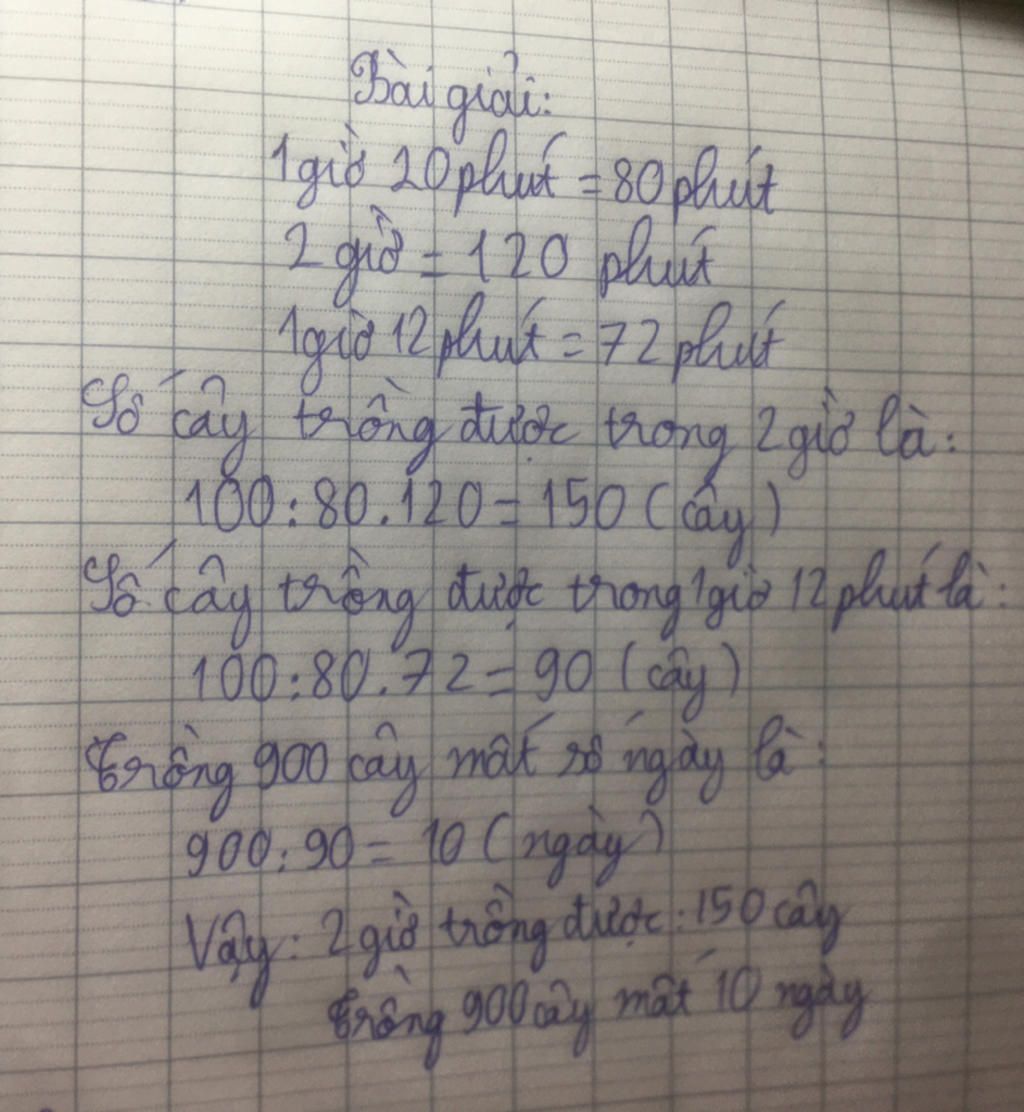 Bài giải:
1 giờ 20 phút = 80 phút
2 giờ = 120 phút
1 giờ 12 phút = 72 phút
Số cây trồng được trong 2 giờ là:
100 : 80 . 120 = 150 (cây)
Số cây trồng được trong 1 giờ 12 phút là:
100 : 80 . 72 = 90 (cây)
Trồng 900 cây mất số ngày là:
900 : 90 = 10 (ngày)
Vậy: 2 giờ trồng được: 150 cây
trồng 900 cây mất 10 ngày